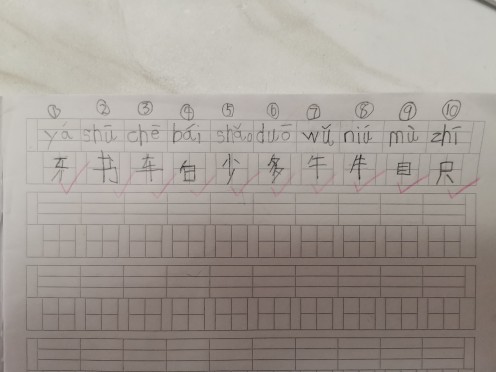 ① ② ③ ④ ⑤ ⑥ ⑦ ⑧ ⑨ ⑩
yá shū chē bái shǎo duō wǔ niú mù zhī
牙 书 车 白 少 多 午 牛 目 只